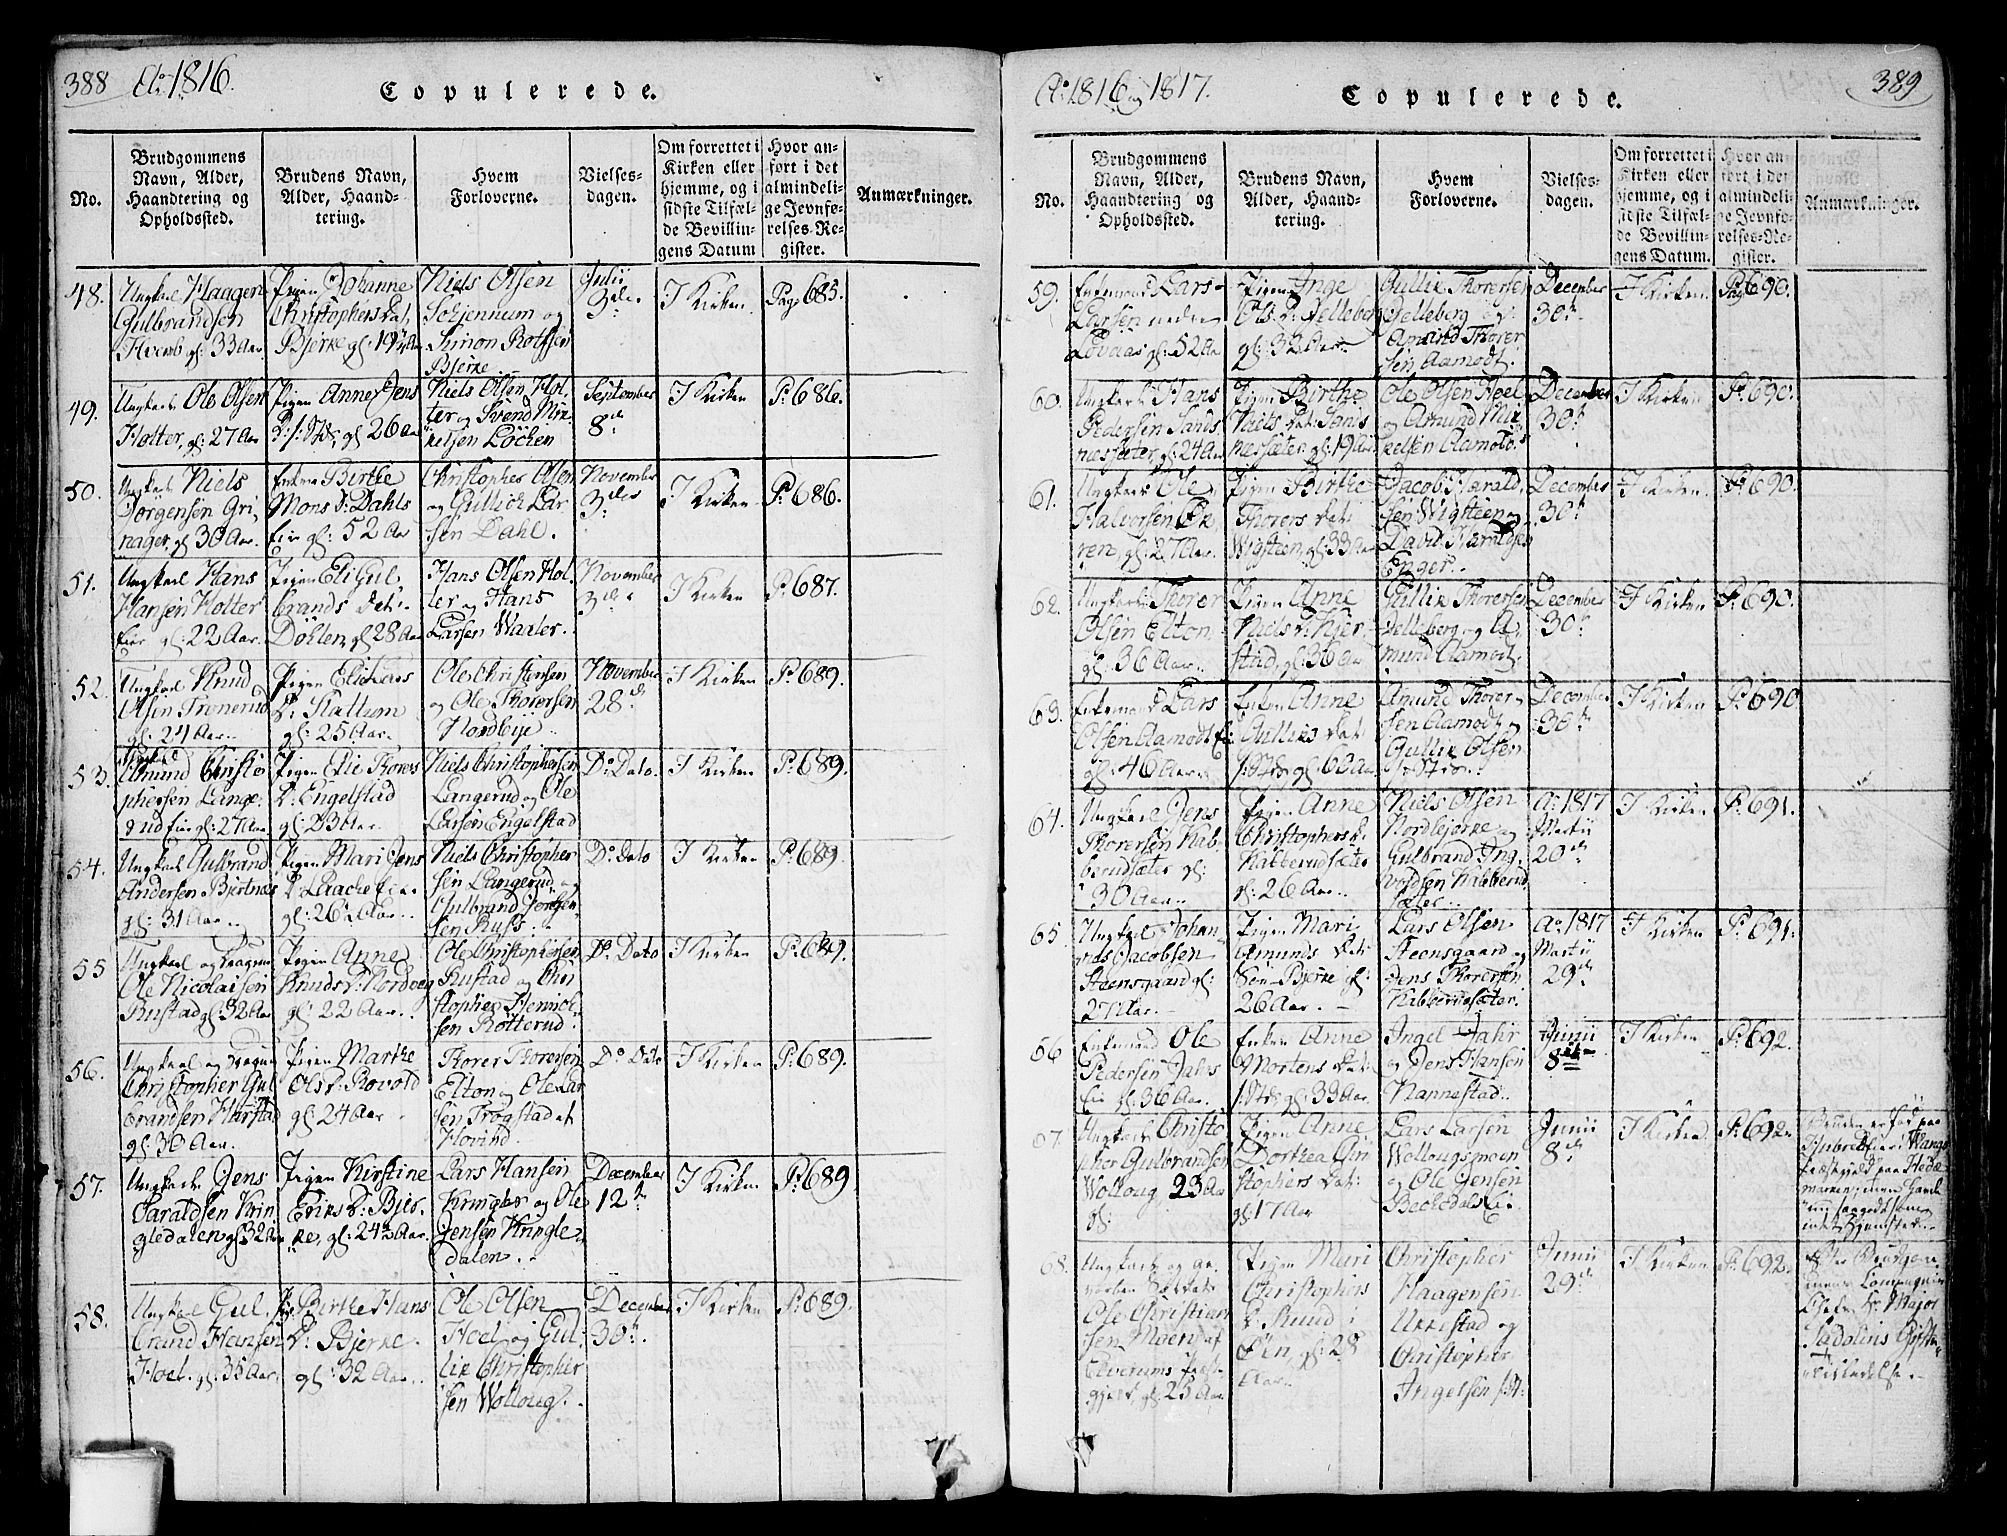 388 Ao 1816.
Copulerede.
No.
Brudgommens
Navn, Alder,
Haandtering og
Opholdssted.
Brudens Navn,
Alder, Haand-
tering.
Hvem
Forloverne.
Vielses-
dagen.
Om forrettet i
Kirken eller
hjemme, og i
sidste Tilfæl-
de Bevillin-
gens Datum
Hvor an-
ført i det
almindeli-
ge Jevnfø-
relses-Re-
gister.
Anmærkninger.
48.
Ungkarl Haagen
Gulbrandsen
gl: 33 Aar.
Pigen Johanne
Christophers Dat.
Bjerke gl: 19½ Aar
Niels Olsen
og
Simon Rolfsen
Bjerke
Julii
3die
I Kirken
Pag 685.
49.
Ungkarl Ole Olsen
Holter, gl: 27 Aar
Pigen Anne Jens
D: gl 26 aar
Niels Olsen Hol-
ter og Svend Mik-
kelsen Löchen
September
8de
I Kirken
P: 686.
50.
Ungkarl Niels
Jörgensen Gri-
nager, gl 30 Aar.
Enken Birthe
Mons D: Dahls
Eier gl: 52 Aar
Christopher Olsen
og Gullich Lar-
sen Dahl.
November
3die
I Kirken
P: 686.
51.
Ungkarl Hans
Hansen Holter
Eier gl: 22 Aar.
Pigen Eli Gul
brands Dat:
Döhlen, gl 28 Aar
Hans Olsen Hol-
ter og Hans
Larsen
November
3die
I Kirken
P: 687.
52.
Ungkarl Knud
Olsen Tronerud
gl: 24 Aar.
Pigen Elie Lars
D: Kattum
gl: 25 Aar.
Ole Christensen
og Ole Thorersen
Nordbye
November
28de
I Kirken
P: 689.
53.
Ungkarl
Amund Christo
phersen Lange-
rud Eier gl: 27 Aar
Pigen Elie Thorers
D: Engelstad
gl: 23 Aar.
Niels Christophersen
Langerud og Ole
Larsen Engelstad
Do Dato.
I Kirken
P: 689.
54.
Ungkarl Gulbrand
Andersen Bjertnæs
gl: 31 Aar.
Pigen Mari Jens
D: Laache Eier
gl: 26½ Aar.
Niels Christopher
sen Langerud og
Gulbrand Jörgen-
sen Russ.
Do Dato
I Kirken
P: 689.
55
Ungkarl og
Ole Nicolaisen
Rustad gl: 32 Aar
Pigen Anne
Knuds D: Nordveg
gl: 22 Aar.
Ole Christophersen
Rustad og Chri
stopher Henrich-
sen Rotterud.
Do Dato
I Kirken
P: 689.
56.
Ungkarl og
Christopher Gul
brandsen Harstad
gl: 30 Aar.
Pigen Marthe
Ols D: Rovold
gl: 24 Aar
Thorer Thorersen
Elton og Ole Lar
sen Trögstad af
Hovind.
Do Dato
I Kirken
P: 689.
57.
Ungkarl Jens
Haraldsen Krin
gledalen gl 32 Aar
Pigen Kirstine
Eriks D: Bjer-
ke, gl: 24½ Aar.
Lars Hansen
Kringler og Ole
Jensen Kringle-
dalen.
December
12te
I Kirken
P: 689
58.
Ungkarl Gul-
brand Hansen
Hoel. gl: 35 Aar.
Birthe Hans
D: Bjerke
gl: 32 Aar.
Ole Olsen
Hoel og Gul-
lik Christopher
sen Wolloug.
December
30te
I Kirken
P: 689.
Ao 1816 og 1817.
Copulerede.
389
No.
Brudgommens
Navn, Alder,
Haandtering og
Opholdssted.
Brudens Navn,
Alder, Haand-
tering.
Hvem
Forloverne.
Vielses-
dagen.
Om forrettet i
Kirken eller
hjemme, og i
sidste Tilfæl-
de Bevillin-
gens Datum.
Hvor an-
ført i det
almindeli-
ge Jevnfø-
relses-Re-
gister.
Anmærkninger.
59.
Enkemand Lars
Larsen nedre
Lovaas gl: 52 Aar
Pigen Inge
Ols D: Delleberg
gl: 32 Aar.
Gullik Thorersen
Delleberg og
Amund Thorer
sen Aamodt.
December
30te
I Kirken
Pag 690.
60.
Ungkarl Hans
Pedersen Sands
næssæter, gl: 24 Aar
Pigen Birthe
Niels Dat: Sands
næssæter gl: 19 Aar
Ole Olsen Hoel
og Amund Mik
kelsen Aamodt
December
30te
I Kirken
P: 690.
61.
Ungkarl Ole
Halvorsen Ök
ren, gl: 27 Aar.
Pigen Birthe
Thorers Dat:
Wigsteen, gl: 33 Aar
Jacob Harald
sen Wigsteen og
David Haraldsen
Enger.
December
30te
I Kirken
P: 690.
62.
Ungkarl Thorer
Olsen Elton,
gl: 36 Aar.
Pigen Anne
Niels D: Kier
stad, gl: 36 Aar
Gullik Thorersen
Delleberg og A-
mund Aamodt.
December
30te
I Kirken
P: 690.
63.
Enkemand Lars
Olsen Aamodt Ei
gl: 46 Aar
Enken Anne
Gulliks Dat
gl: 60 Aar
Amund Thorer-
sen Aamodt og
Gullik Olsen
December
30te
I Kirken
P: 690
64.
Ungkarl Jens
Thorersen Kab-
berudsæter gl:
30 Aar.
Pigen Anne
Christophers D:
Kabberudsæter
gl: 26 Aar.
Niels Olsen
Nordbjerke og
Gulbrand Ing-
voldsen Kabberud
sæter.
Ao 1817
Martii
20de
I Kirken
P: 691.
65.
Ungkarl Johan-
nes Jacobsen
Steensgaard gl:
27 Aar.
Pigen Mari
Amunds Dat:
Bjerke gl:
26 Aar.
Lars Olsen
Steensgaard og
Jens Thorersen
Kabberudsæter.
Ao 1817
Martii
29de
I Kirken
P: 691.
66
Enkemand Ole
Pedersen
Eier gl: 36 Aar.
Enken Anne
Mortens Dat:
gl: 33 Aar.
og Jens Hansen
Nannestad.
Junii
8de
I Kirken
P: 692.
67.
Ungkarl Christo
pher Gulbrandsen
Wolloug 23 Aar
gl:
Pigen Anne
Dorthea Chri
stophers Dat:
gl: 17 Aar
Lars Larsen
Wollougsmoen
og Ole Jensen
Junii
8de
I Kirken
P: 692.
Bruden er föd paa
i Wangs
Præstegjeld paa Hede
marken; men havde
68.
Ungkarl og ge-
vorben Soldat
Ole Christian
sen Moen af
Elverums Præste
gjeld, gl: 25 Aar
Pigen Mari
Christophers
D:
Eier, gl: 28
Aar.
Christopher
Haagensen
Ukkestad og
Christopher
Ingelsen
Junii
29de
I Kirken
P: 692.
Efter Brudgom-
mens Compagnie
Chefs Hr: Major
Gifte-
Tilladelse.